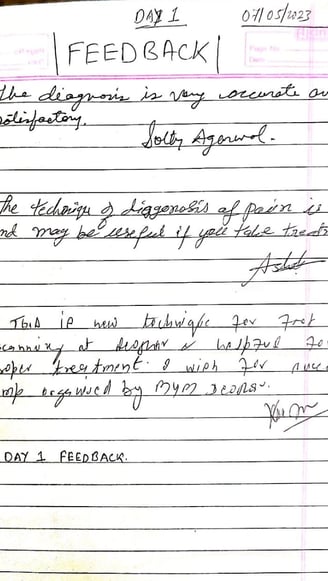 DAY 1 07/05/2023
FEEDBACK
The diagnosis is very accurate an
satisfactory.
Agarwal.
The technique of diggonosis of pain is
nd may be useful if you take treat
This is new technique for foot
scanning at & helpful fo
roper treatment. I wish for succ
mp organised by
DAY 1 FEEDBACK.